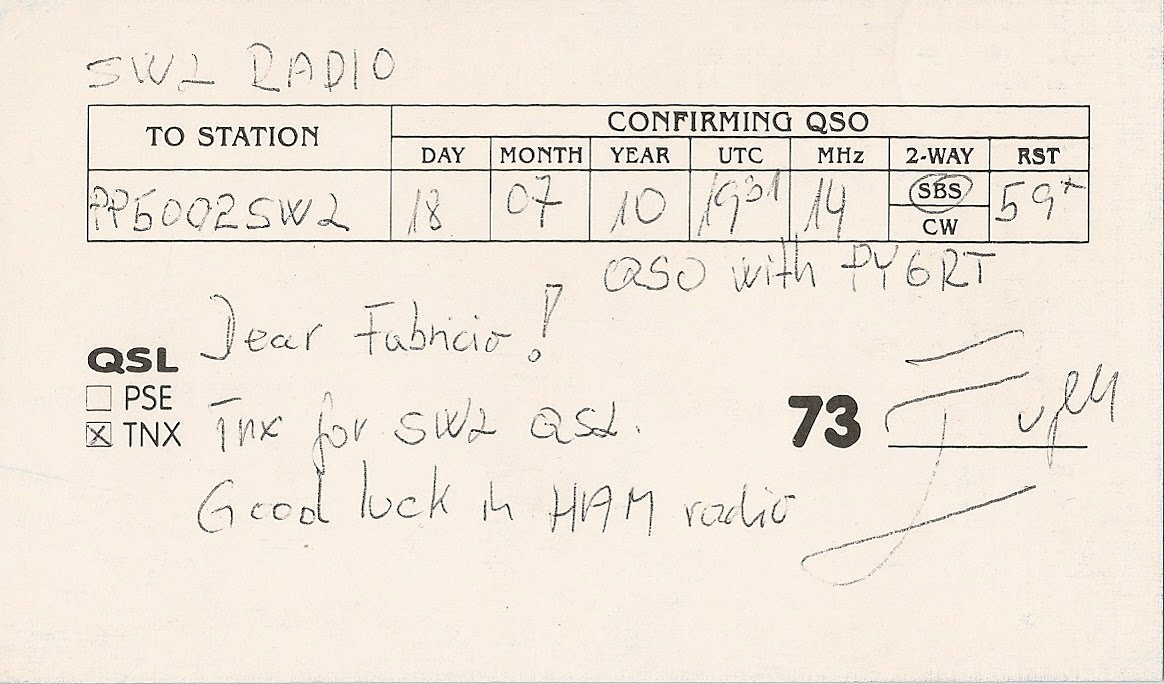 SWL RADIO
TO STATION CONFIRMING QSO
DAY MONTH YEAR UTC MHz 2-WAY RST
PP5002SWL 18 07 10 19 31 14 SBS 59+
CW
QSO with PY6RT
Dear Fabricio!
QSL
PSE
TNX Tnx for SWL QSL. 73
Good luck in HAM radio